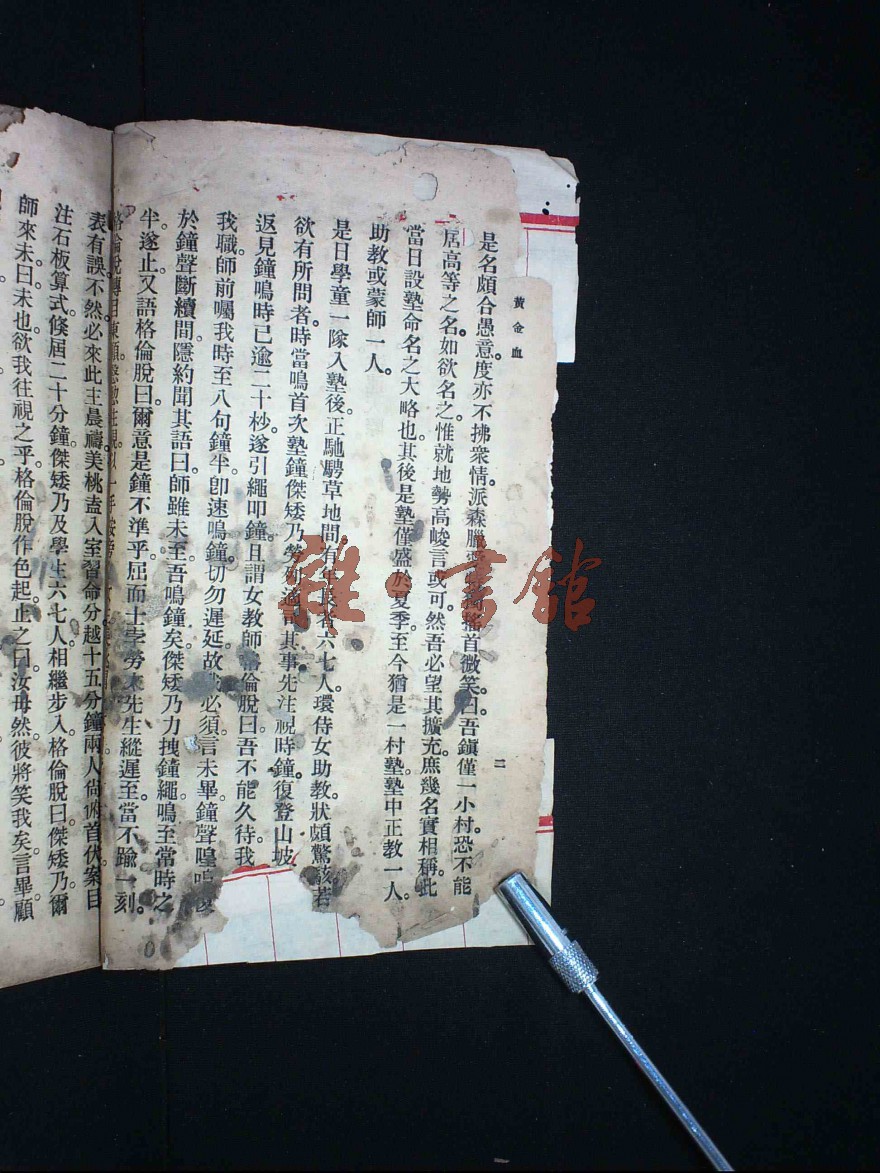 黃金血
二
是名頗合愚意度亦不拂衆情派森臘搖首微笑曰吾鎭僅一小村恐不能
居高等之名如欲名之惟就地勢高峻言或可然吾必望其擴充庶幾名實相稱此
當日設塾命名之大略也其後是塾僅盛於夏季至今猶是一村塾塾中正教一人
助教或蒙師一人
是日學童一隊入塾後正馳騁草地間有年長者六七人環侍女助教狀頗驚駭若
欲有所問者時當鳴首次塾鐘傑矮乃勞適司其事先注視時鐘復登山坡
返見鐘鳴時已逾二十秒遂引繩叩鐘且謂女教師格倫脫曰吾不能久待我
我職師前囑我時至八句鐘半卽速鳴鐘切勿遲延故我必須言未畢鐘聲喤
於鐘聲斷續間隱約聞其語曰師雖未至吾鳴鐘矣傑矮乃力拽鐘繩鳴至當時之
半遂止又語格倫脫曰爾意是鐘不準乎屈而士孛勞夫先生縱遲至當不踰一刻
格倫脫轉目東顧
表有誤不然必來此主晨禱美桃盍入室習命分越十五分鐘兩人尙俯首伏案目
注石板算式倏屆二十分鐘傑矮乃及學生六七人相繼步入格倫脫曰傑矮乃爾
師來未曰未也欲我往視之乎格倫脫作色起止之曰汝毋然彼將笑我矣言畢顧
雜·書館